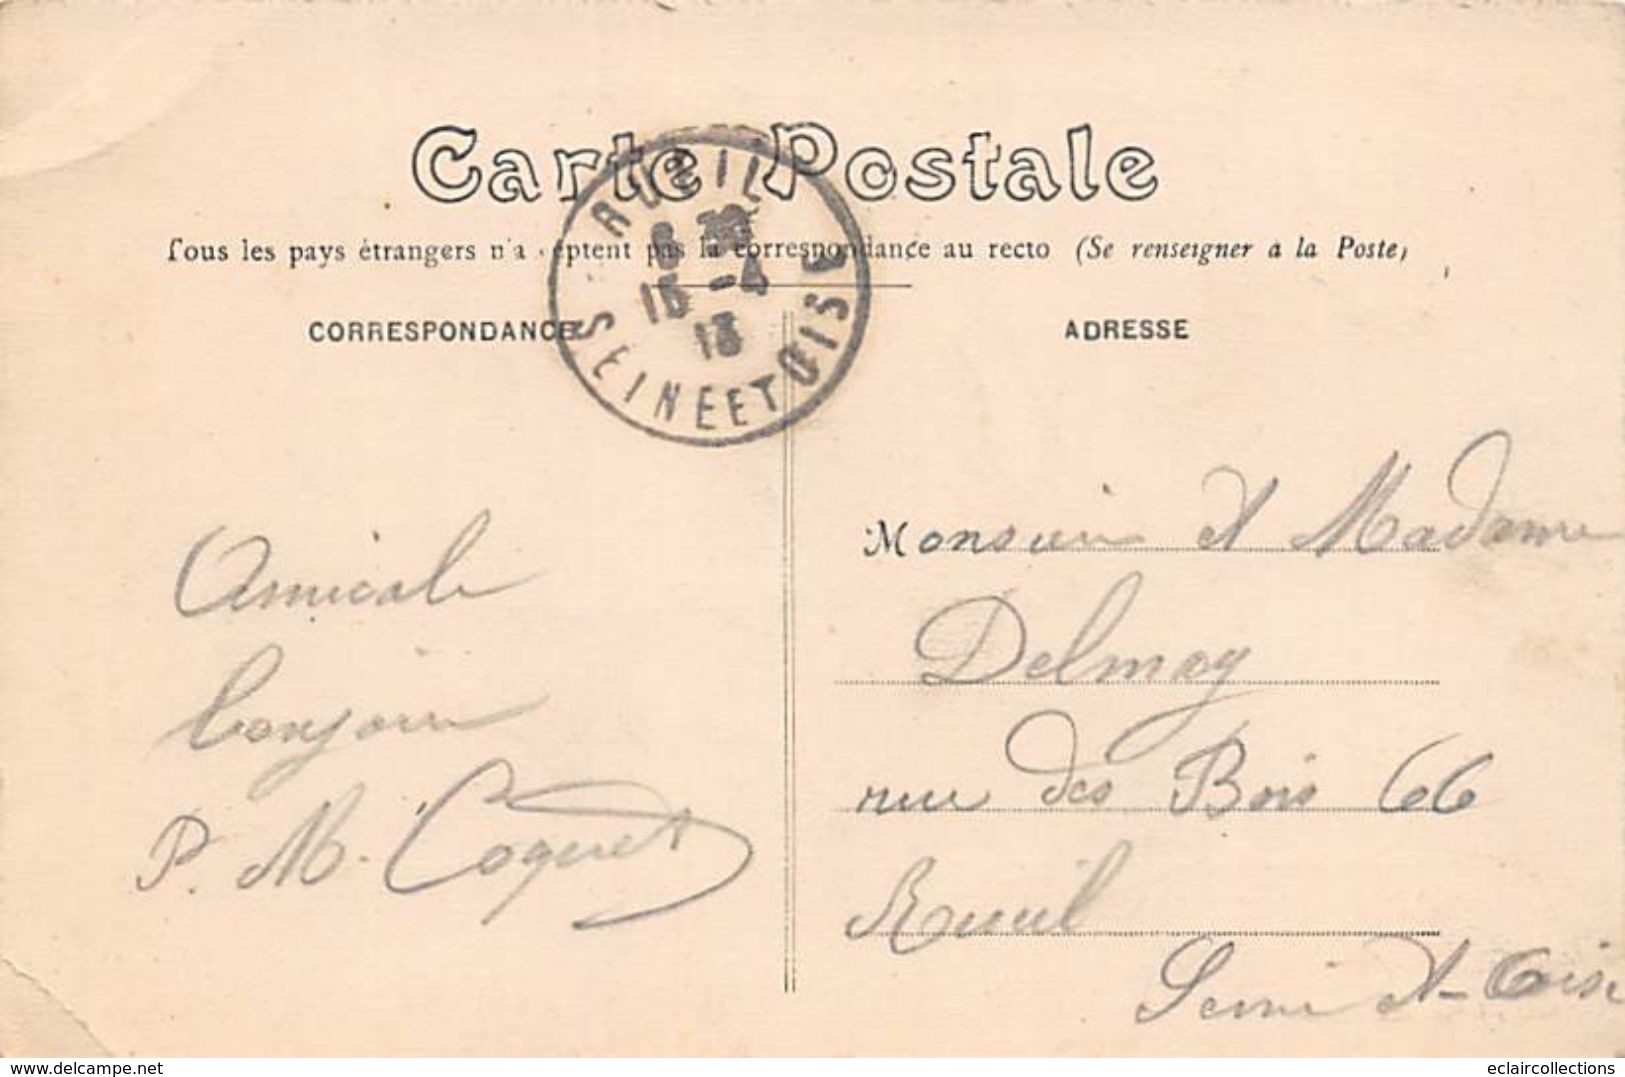 Carte Postale
Tous les pays étrangers n'acceptent pas la correspondance au recto (Se renseigner à la Poste)
RUEIL
8 30
15 -4
13
SEINE ET OISE
CORRESPONDANCE
ADRESSE
Amicale
bonjour
P. M. Coquet
Monsieur et Madame
Delmay
rue des Bois 66
Rueil
Seine et-Oise
www.delcampe.net
eclaircollections